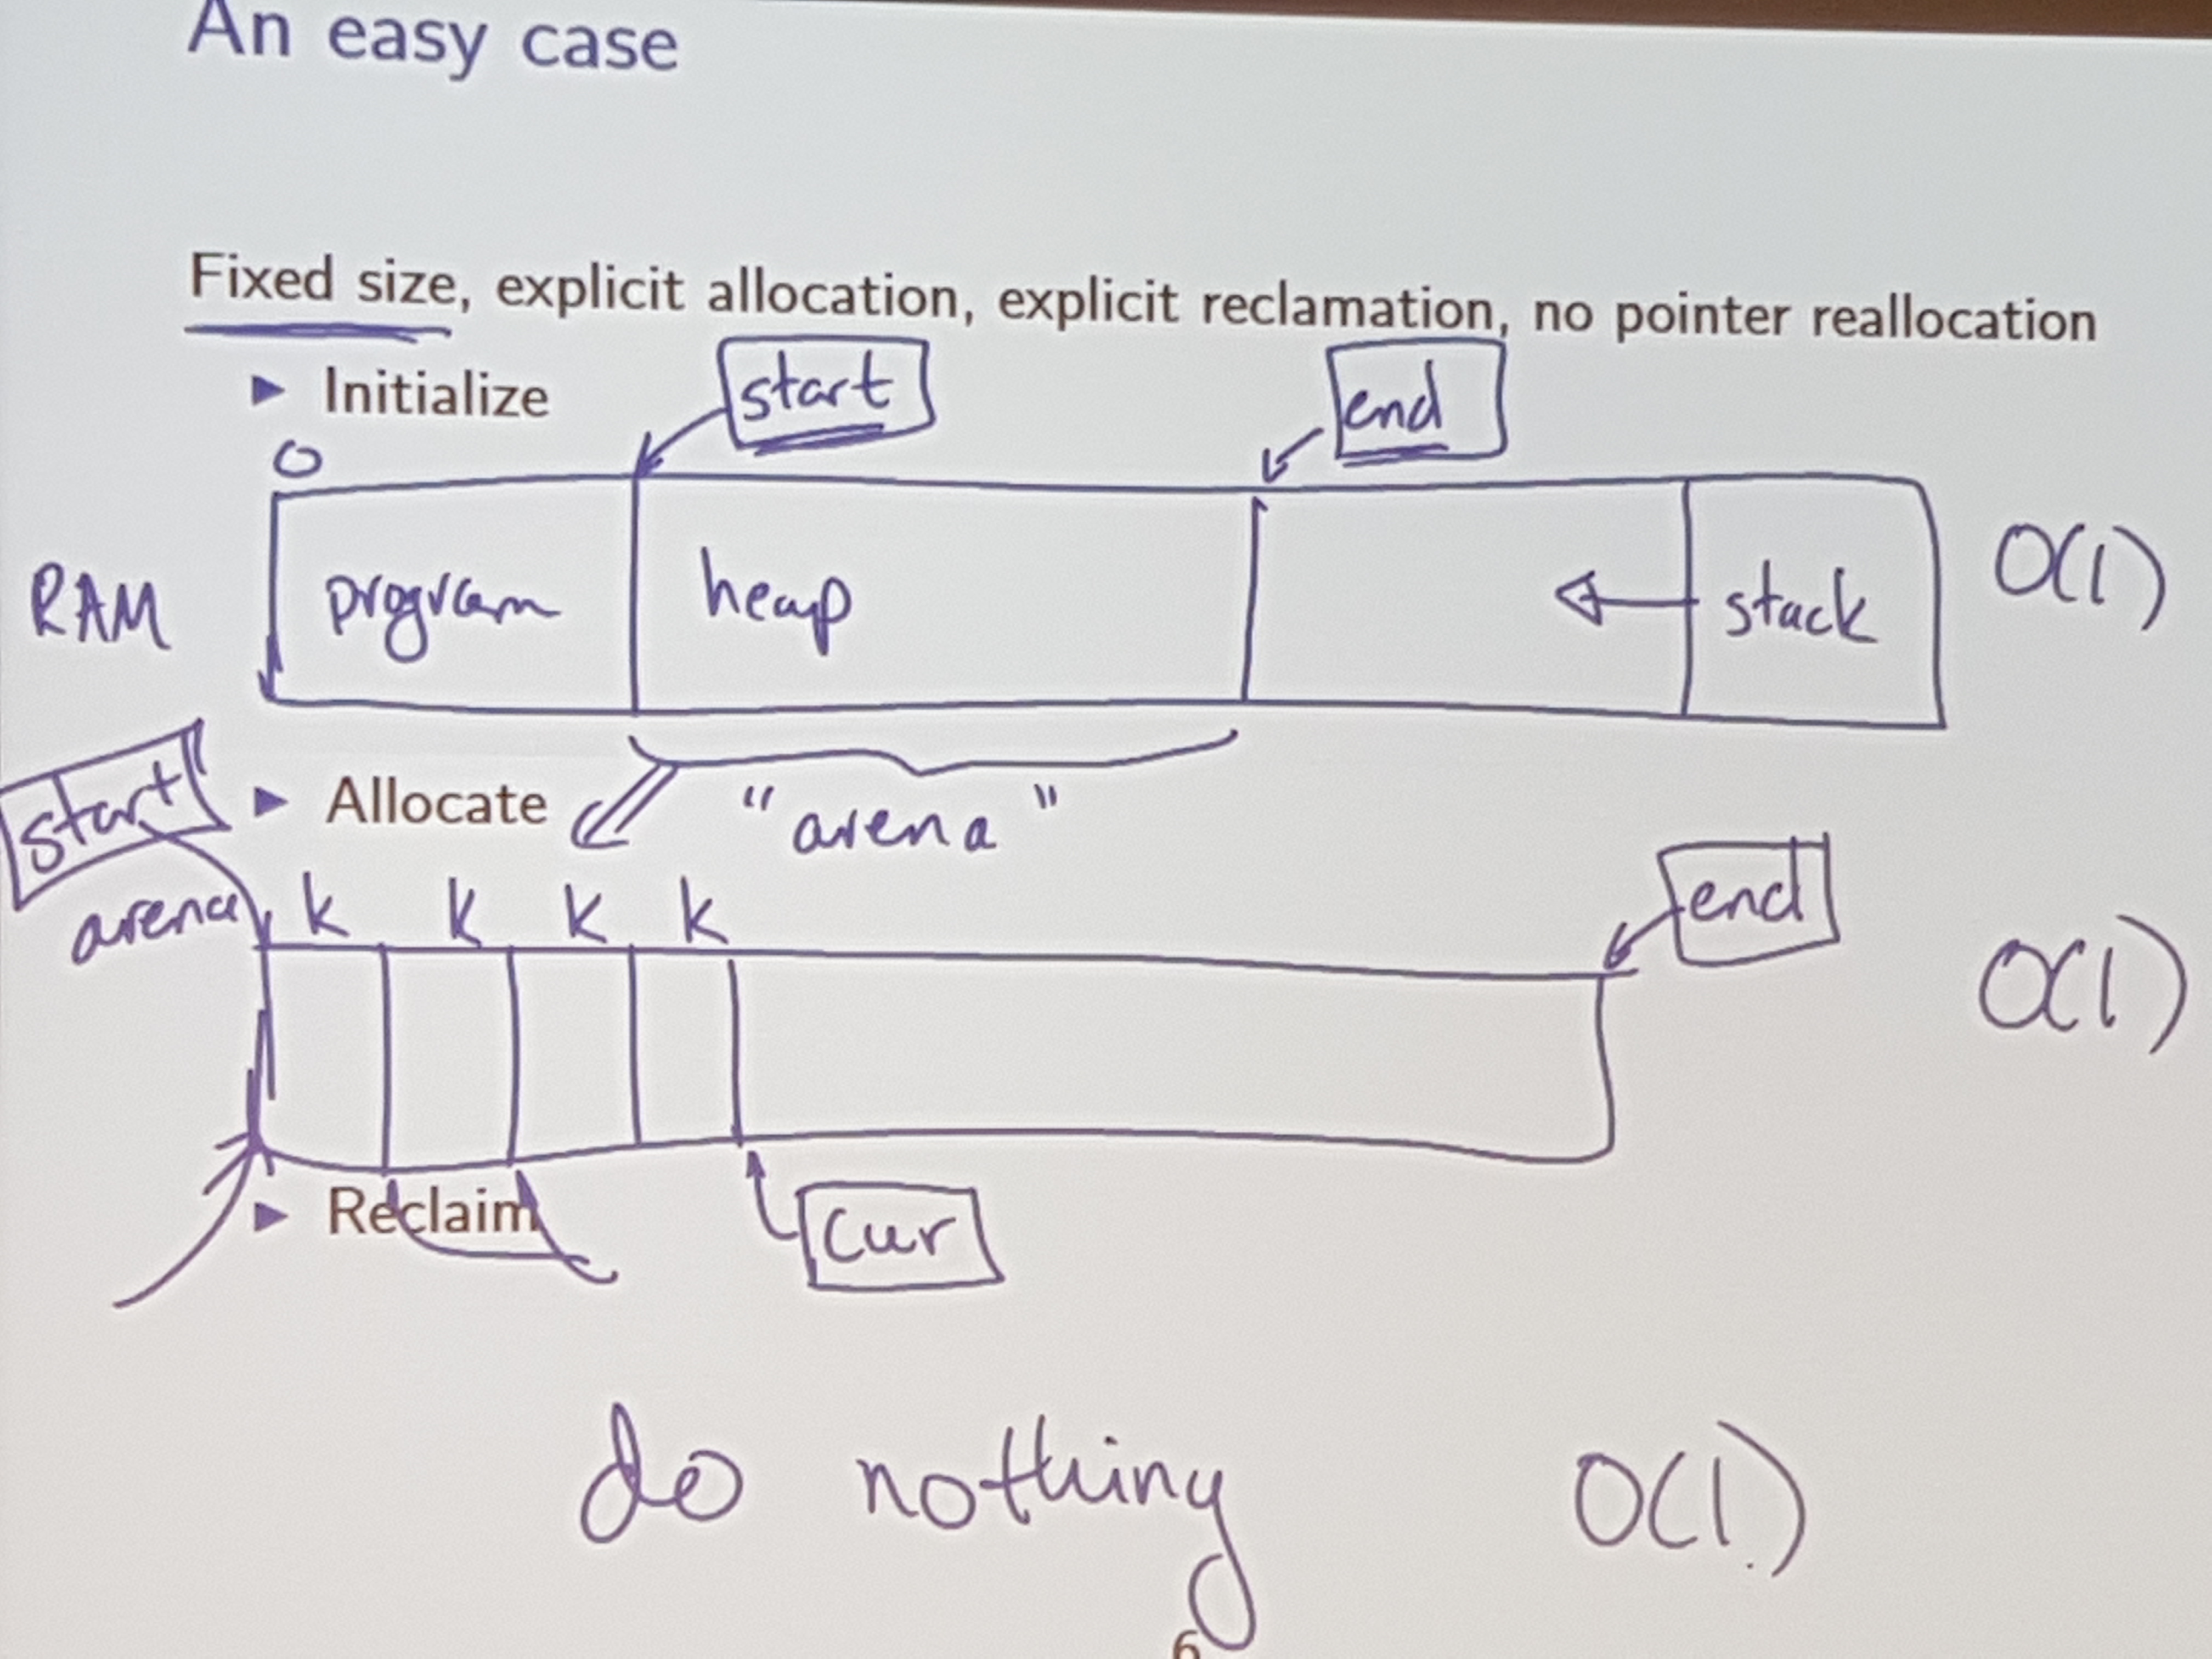 An easy case
Fixed size, explicit allocation, explicit reclamation, no pointer reallocation
▶ Initialize
start
end
0
RAM
program
heap
stack
O(1)
start
▶ Allocate
"arena"
arena
k k k k
end
O(1)
▶ Reclaim
cur
do nothing
O(1)
6